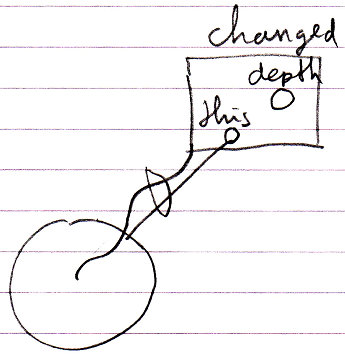 changed
depth
this